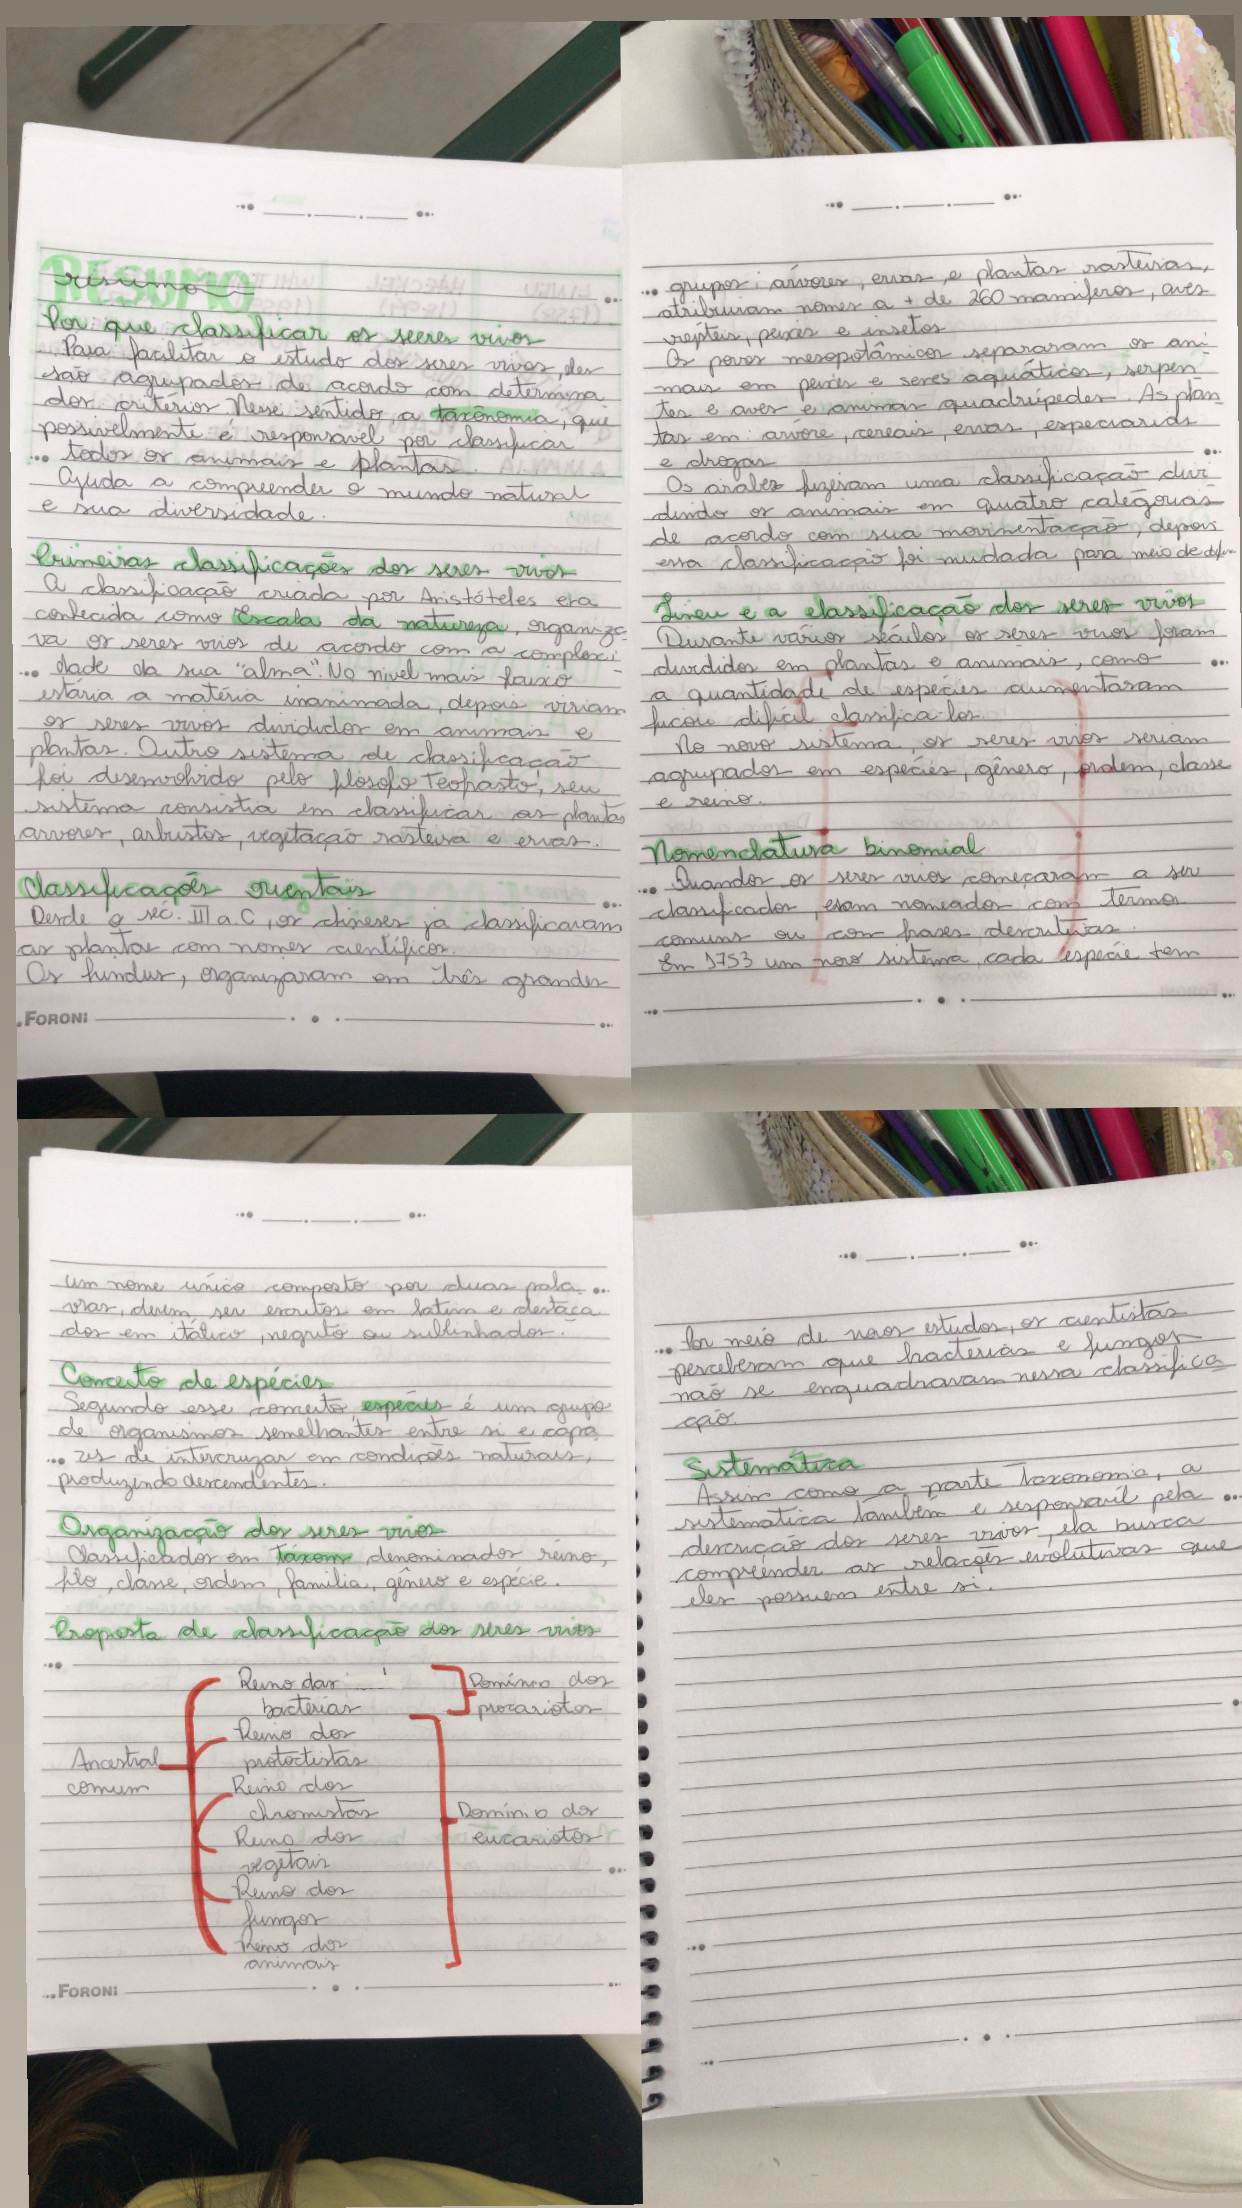 RESUMO
resumo
Por que classificar os seeres vivos
Para facilitar o estudo dos seres vivos, eles
são agrupados de acordo com determina
dos critérios Nesse sentido a taxonomia, que
possivelmente é responsável por classificar
todos os animais e plantas.
Ajuda a compreender o mundo natural
e sua diversidade.
Primeiras classificações dos seres vivos
A classificação criada por Aristóteles era
conhecida como Escala da natureza, organiza
va os seres vivos de acordo com a complexi
dade da sua "alma". No nível mais baixo
estária a matéria inanimada, depois viriam
os seres vivos divididos em animais e
plantas. Outro sistema de classificação
foi desenvolvido pelo filósofo Teofrasto, seu
sistema consistia em classificar as plantas
arvores, arbustos, vegetação rasteira e ervas.
Classificações orientais
Desde o séc. III a.C, os chineses já classificavam
as plantas com nomes científicos.
Os hindus, organizaram em três grandes
FORONI
grupos: árvores, ervas, e plantas rasteiras,
atribuiram nomes a + de 260 mamíferos, aves
repteis, peixes e insetos
Os povos mesopotâmicos separaram os ani-
mais em peixes e seres aquáticos, serpen
tes e aves e animais quadrúpedes. As plan
tas em: arvore, cereais, ervas, especiarias
e drogas
Os arabes fizeram uma classificação divi
dindo os animais em quatro categorias
de acordo com sua movimentação, depois
essa classificação foi mudada para meio de
Lineu e a classificação dos seres vivos
Durante vários séculos os seres vivos foram
divididos em plantas e animais, como
a quantidade de espécies aumentaram
ficou difícil classifica-los.
No novo sistema, os seres vivos seriam
agrupados em espécies, gênero, ordem, classe
e reino.
Nomenclatura binomial
Quandos os seres vivos começaram a ser
classificados, eram nomeados com termos
comuns ou com frases descritivas.
Em 1753 um novo sistema, cada espécie tem
um nome único composto por duas pala
vras, devem ser escritos em latim e destaca
dos em itálico, negrito ou sublinhados.
Conceito de espécies
Segundo esse conceito espécies é um grupo
de organismos semelhantes entre si e capa
zes de intercruzar em condições naturais,
produzindo descendentes.
Organização dos seres vivos
Classificados em táxons, denominados reino,
filo, classe, ordem, família, gênero e espécie.
Proposta de classificação dos seres vivos
Reino das
bacterias
Domínio dos
procariotos
Reino dos
protoctistas
Ancestral
comum
Reino dos
chromistas
Domínio dos
eucariotos
Reino dos
vegetais
Reino dos
fungos
Reino dos
animais
FORONI
Por meio de novos estudos, os cientistas
perceberam que bacterias e fungos
não se enquadravam nessa classifica
ção.
Sistemática
Assim como a parte taxonomia, a
sistematica também e responsavíl pela
descrição dos seres vivos, ela busca
compreender as relações evolutivas que
eles possuem entre si.